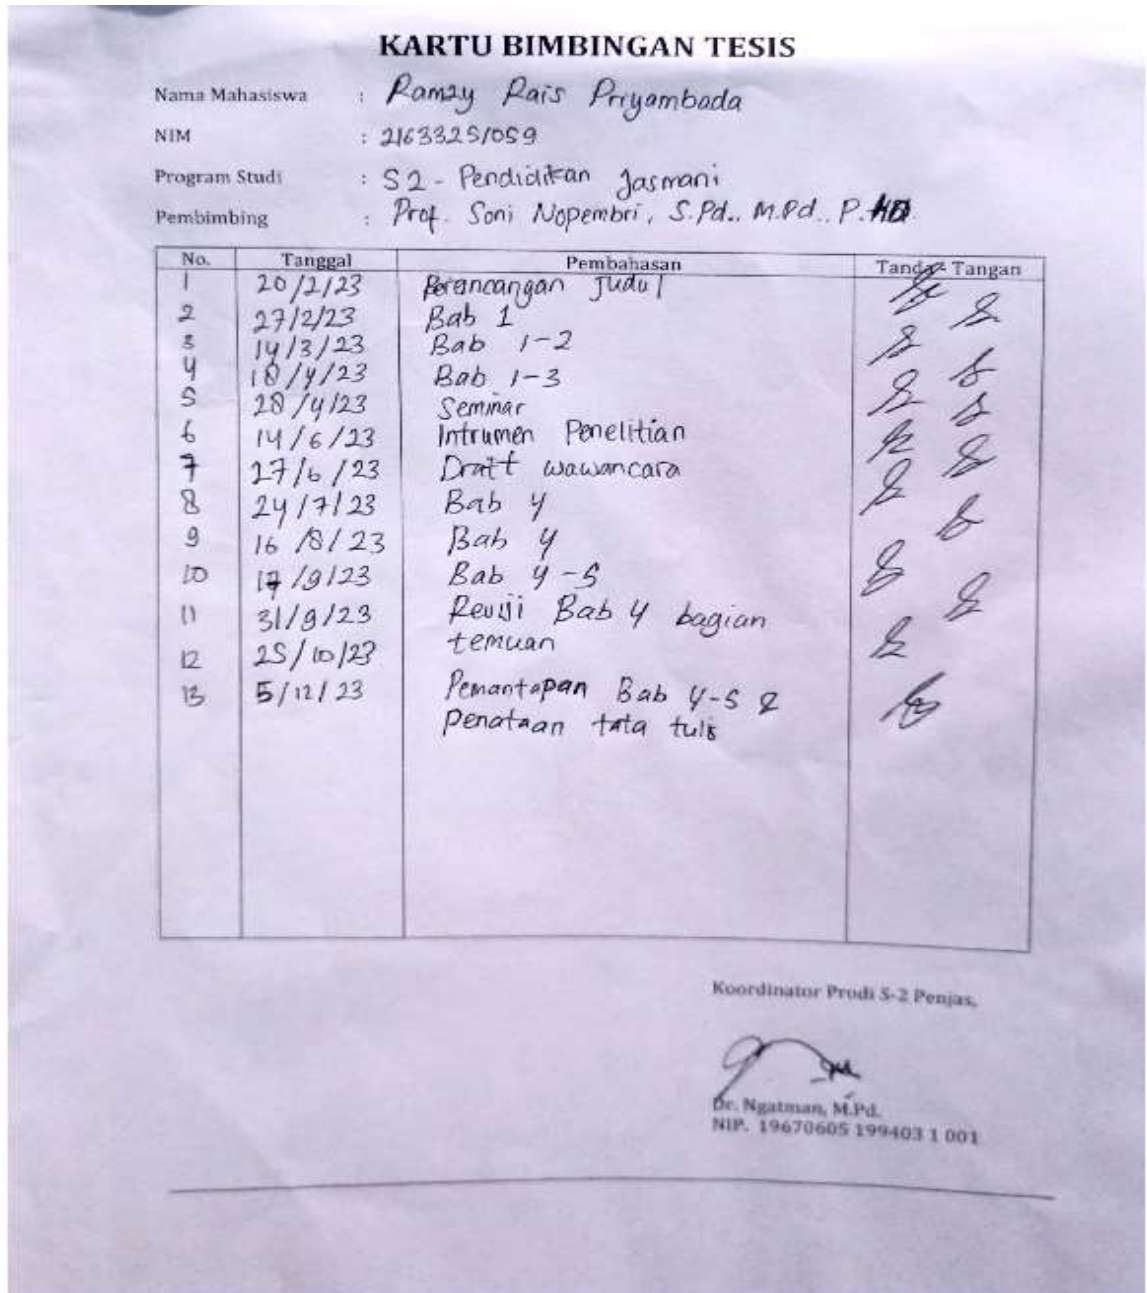 KARTU BIMBINGAN TESIS
Nama Mahasiswa : Ramzy Rais Priyambada
NIM : 21633251059
Program Studi : S2 - Pendidikan Jasmani
Pembimbing : Prof. Soni Nopembri, S.Pd., M.Pd., P.HD.
No. Tanggal Pembahasan Tanda Tangan
1 20/2/23 Perancangan Judul
2 27/2/23 Bab 1
3 14/3/23 Bab 1-2
4 18/4/23 Bab 1-3
5 28/4/23 Seminar
6 14/6/23 Intrumen Penelitian
7 27/6/23 Draft wawancara
8 24/7/23 Bab 4
9 16/8/23 Bab 4
10 17/9/23 Bab 4-5
11 31/9/23 Revisi Bab 4 bagian
12 25/10/23 temuan
13 5/12/23 Pemantapan Bab 4-5 &
penataan tata tulis
Koordinator Prodi S-2 Penjas,
Dr. Ngatman, M.Pd.
NIP. 19670605 199403 1 001